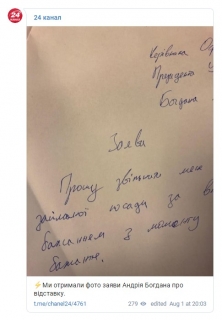 24 канал
Керівника О
Президента У
Богдана
Заява
Прошу звільнити мене
займаної посади за в
бажанням з моменту
бажання.
⚡Ми отримали фото заяви Андрія Богдана про
відставку.
t.me/chanel24/4761 279 edited Aug 1 at 20:03